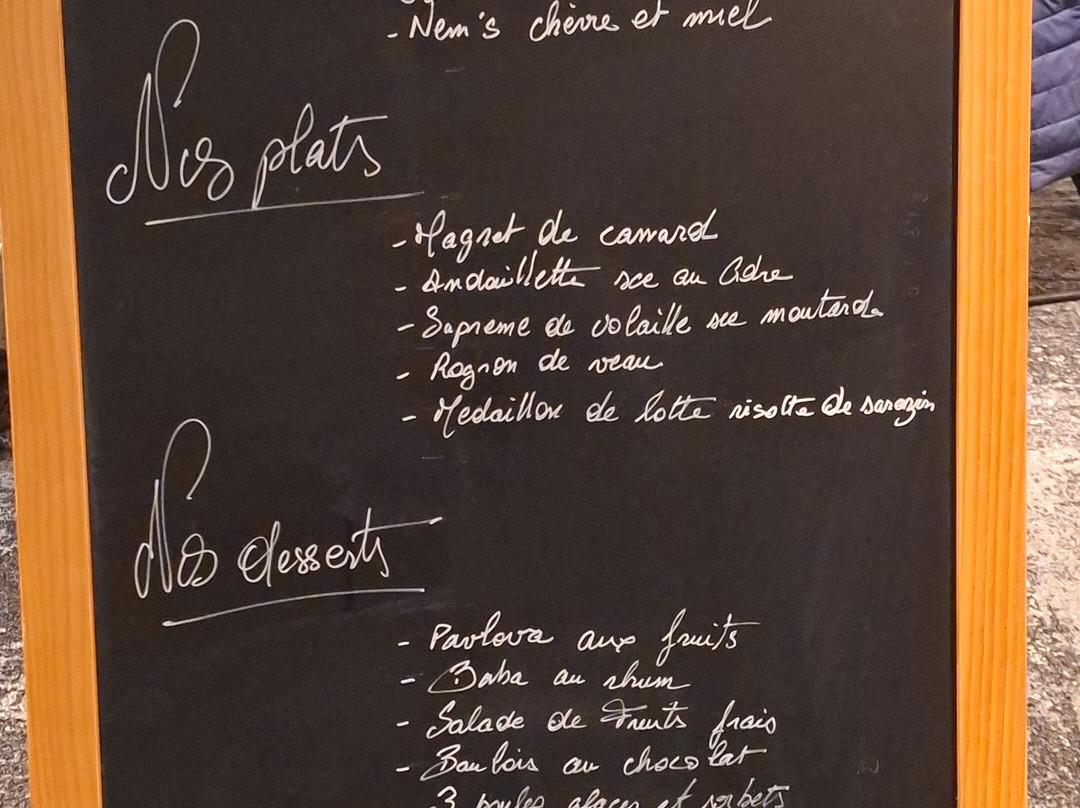 - Nem's chèvre et miel
Nos plats
- Magret de canard
- Andouillette sce au Cidre
- Supreme de volaille sce moutarde
- Rognon de veau
- Medaillon de lotte risotto de sarazin
Nos desserts
- Pavlova aux fruits
- Baba au rhum
- Salade de Fruits frais
- Baulois au chocolat
- 3 boules glaces et sorbets